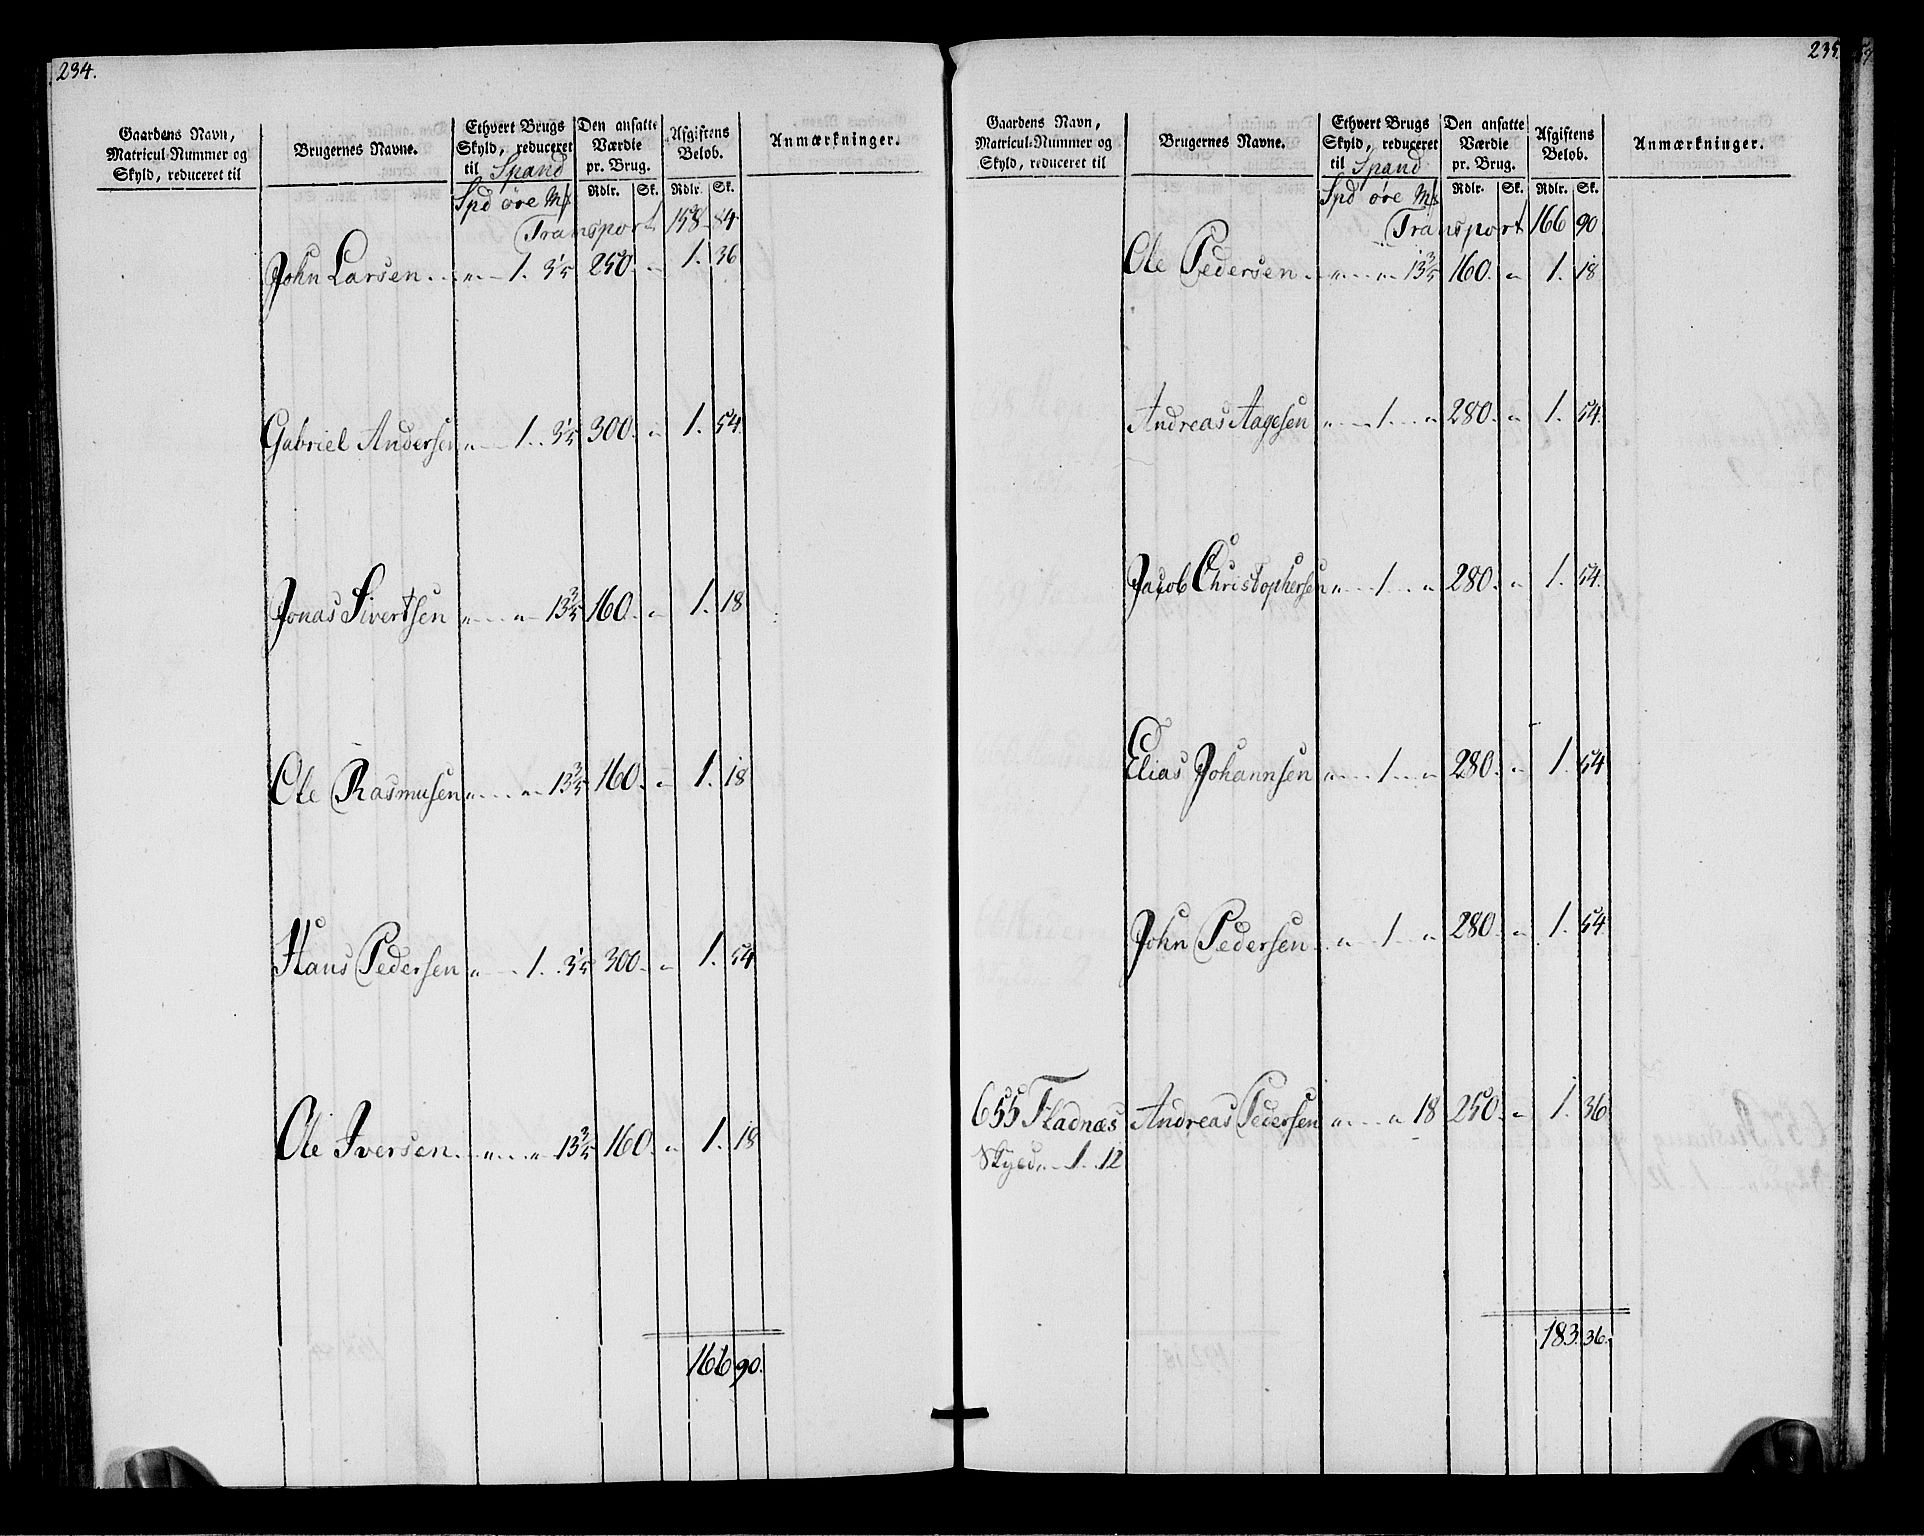 234.
Gaardens Navn, Matricul-Nummer og Skyld, reduceret til | Brugernes Navne. | Ethvert Brugs Skyld, reduceret til Spand | Den ansatte Værdie pr. Brug. | Afgiftens Beløb. | Anmærkninger.
Spd øre Mk | Rdlr. | Sk. | Rdlr. | Sk.
Transport 158 84
John Larsen „ 1. 3 1/5 250. „ 1. 36
Gabriel Andersen „ 1. 3 1/5 300. „ 1. 54
Jonas Sivertsen „ „ 13 3/5 160. „ 1. 18
Ole Rasmusen „ „ 13 3/5 160. „ 1. 18
Hans Pedersen „ 1. 3 1/5 300. „ 1. 54
Ole Iversen „ „ 13 3/5 160. „ 1. 18
166 90.
235
Gaardens Navn, Matricul-Nummer og Skyld, reduceret til | Brugernes Navne. | Ethvert Brugs Skyld, reduceret til Spand | Den ansatte Værdie pr. Brug. | Afgiftens Beløb. | Anmærkninger.
Spd øre Mk | Rdlr. | Sk. | Rdlr. | Sk.
Transport 166 90
Ole Pedersen „ „ 13 3/5 160. „ 1. 18
Andreas Aagesen „ 1 „ 280. „ 1. 54.
Jacob Christophersen „ 1 „ 280. „ 1. 54.
Elias Johannsen „ 1 „ 280. „ 1. 54
John Pedersen „ 1 „ 280. „ 1. 54
655 Fladnæs Andreas Pedersen „ „ 18 250. „ 1. 36
Skyld „ 1. 12
183. 36.